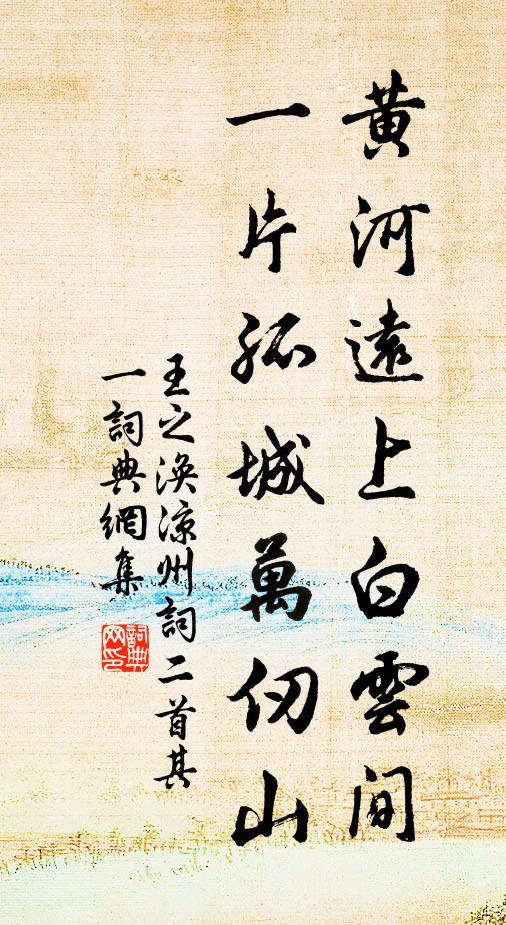 黃河遠上白雲間
一片孤城萬仞山
王之渙涼州詞二首其
一詞典網集
詞典
網印